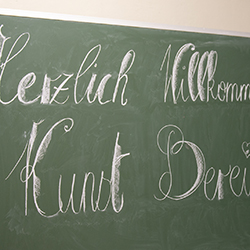 Herzlich Willkomm
Kunst Berei